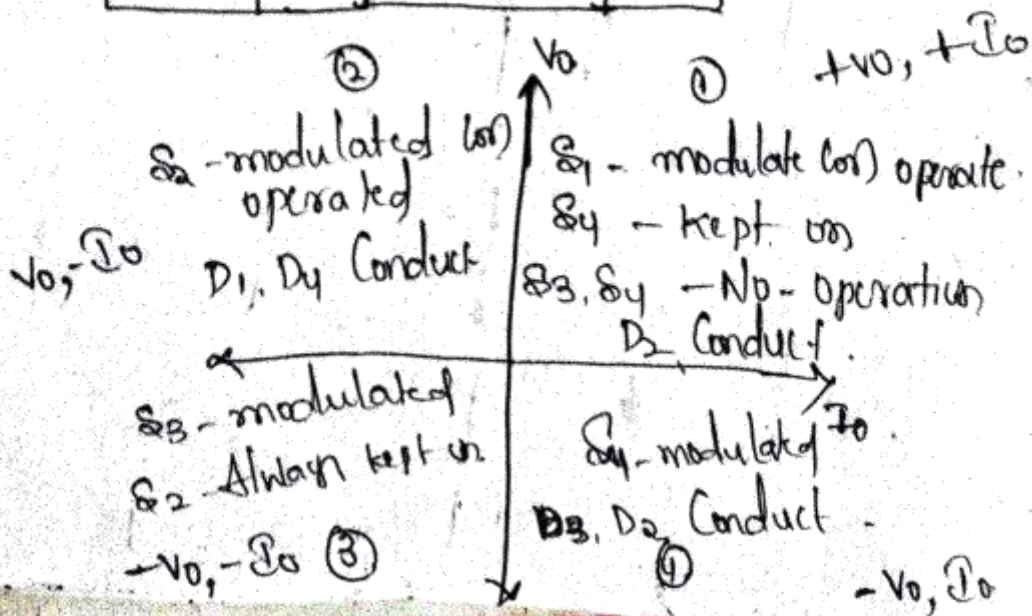 Vo
②
①
+Vo, +Io
S2 - modulated (or)
operated
Vo, -Io
D1, D4 Conduct
S1 - modulate (or) operate.
S4 - Kept on
S3, S4 - No - operation
D2 Conduct.
Io
S3 - modulated
S2 - Always kept on
-Vo, -Io ③
S4 - modulated
D3, D2 Conduct -
④
- Vo, Io